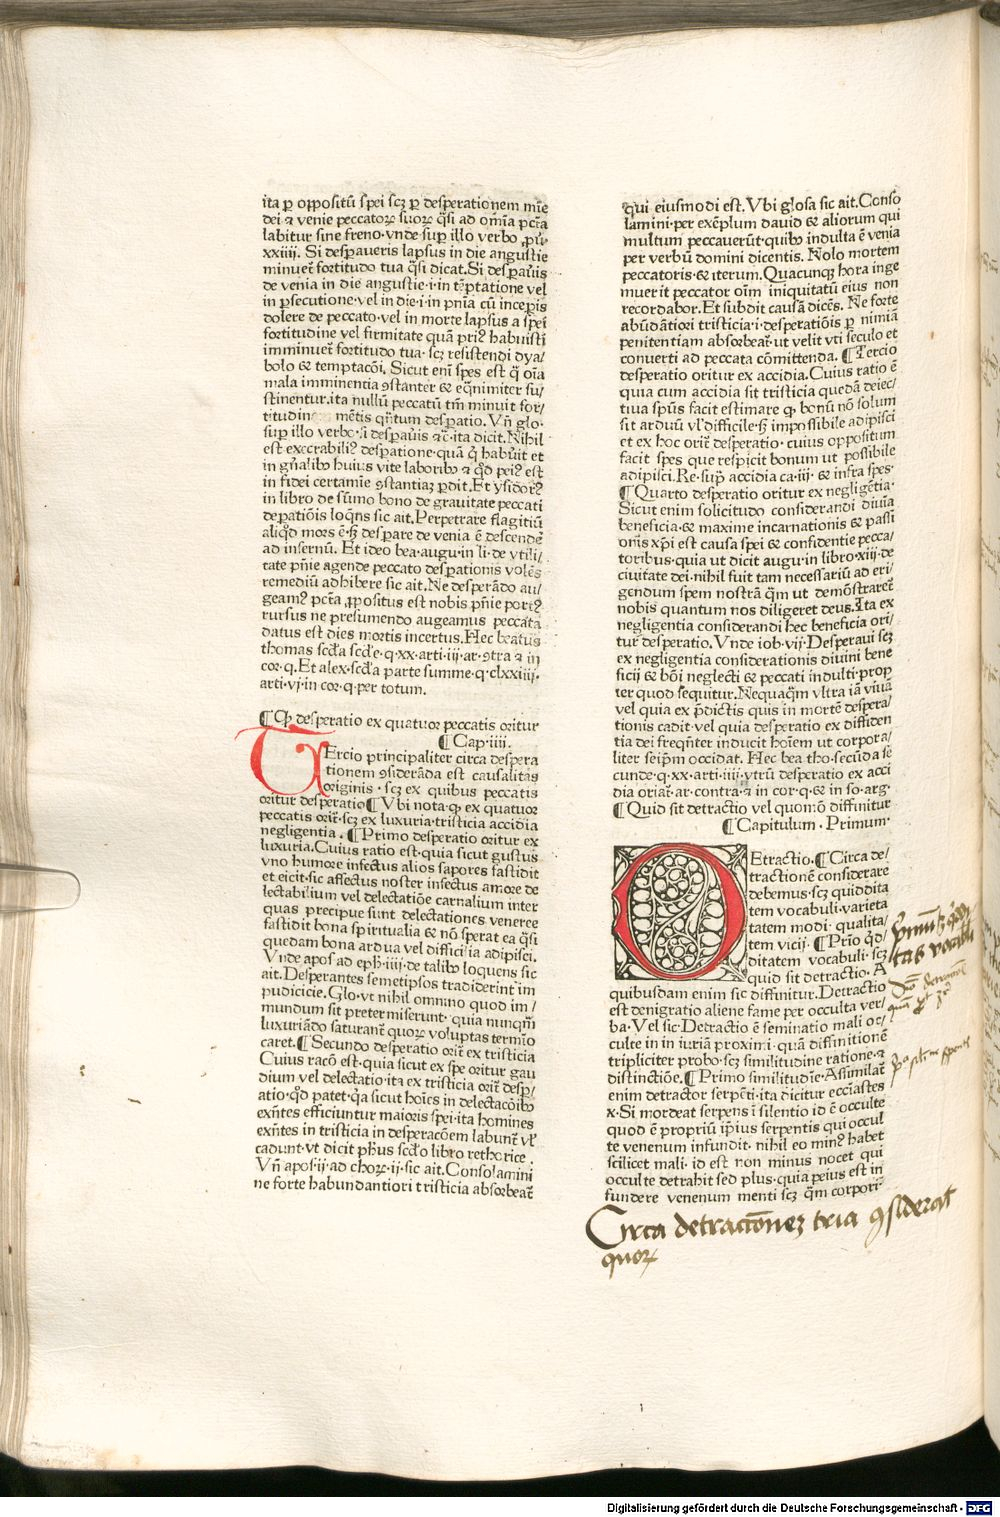 ita ꝑ oppositū spei scꝫ ꝑ desperationem mīe
dei ⁊ venie peccatoꝝ suoꝝ q̄si ad om̄ia pctā
labitur sine freno·vnde sup̱ illo verbo
xxiiij. Si desꝑaueris lapsus in die angustie
minuet̄ fortitudo tua q̄si dicat.Si desꝑau̾is
de venia in die angustie·i·in tēptatione vel
in ꝑsecutione·vel in die·i·in pn̄ia cū inceꝑis
dolere de peccato·vel in morte lapsus a spei
fortitudine vel firmitate quā priꝰ habuisti
imminuet̄ fortitudo tua·scꝫ resistendi dya/
bolo ⁊ temptacōi. Sicut eni spes est q̄ oīa
mala imminentia ꝯstanter ⁊ eq̄nimiter su/
stinentur.ita nullū peccatū tm̄ minuit for/
titudin mētis qn̄tum desꝑatio. Vn̄ glo·
sup̱ illo verbo·si desꝑau̾is ⁊c̄·ita dicit.Nihil
est execrabiliꝰ desꝑatione·quā q̄ habu̾it et
in gn̄alibꝰ huius vite laboribꝰ ⁊ q̄d peiꝰ est
in fidei certamīe ꝯstantiaꝫ ꝑdit.Et ysidorꝰ
in libro de sūmo bono de grauitate peccati
desꝑatiōis loq̄ns sic ait.Perpetrare flagitiū
aliq̄d mors ē·sꝫ desꝑare de venia ē descendē
ad infernū. Et ideo bea·augu·in li·de vtili/
tate pn̄ie agende peccato desꝑationis volēs
remediū adhibere sic ait.Ne desperādo au/
geamꝰ pctā ꝓpositus est nobis pn̄ie portꝰ
rursus ne presumendo augeamus peccata
datus est dies mortis incertus.Hec beatus
thomas scd̄a scd̄e·q·xx·arti·iij·ar·ꝯtra ⁊ in
cor·q.Et alex·scd̄a parte summe·q·clxxiiij.
arti·vj·in cor·q·per totum.
¶ Q̱ desperatio ex quatuor peccatis oritur
¶ Cap·iiij.
TErcio principaliter circa despera
tionem ꝯsiderāda est causalitas
originis·scꝫ ex quibus peccatis
oritur desperatio ¶ Vbi nota·ꝙ ex quatuor
peccatis orit̄·scꝫ ex luxuria·tristicia accidia
negligentia. ¶ Primo desperatio oritur ex
luxuria.Cuius ratio est·quia sicut gustus
vno humore infectus alios sapores fastidit
et eicit·sic affectus noster infectus amore de
lectabilium vel delectatiōe carnalium inter
quas precipue sunt delectationes veneree
fastidit bona spiritualia ⁊ nō sperat ea q̄si
quedam bona ardua vel difficilia adipisci.
Vnde apos ad eph·iiij·de talibꝰ loquens sic
ait.Desperantes semetipsos tradiderint im
pudicicie.Glo·vt nihil omnino quod im/
mundum sit pretermiserunt·quia nunqm̄
luxuriādo saturant̄ quoꝝ voluptas termīo
caret. ¶ Secundo desperatio orit̄ ex tristicia
Cuius racō est·quia sicut ex spe oritur gau
dium vel delectatio·ita ex tristicia orit̄ desꝑ/
atio·q̄d patet·q̄a sicut hoīes in delectacōibꝰ
exn̄tes efficiuntur maioris spei·ita homines
exn̄tes in tristicia in desperacōem labunt̄ vl̄
cadunt·vt dicit ph̄us scd̄o libro rethorice.
Vn̄ apos·ij·ad choꝝ·ij·sic ait.Consolamini
ne forte habundantiori tristicia absorbeat̄
qui eiusmodi est.Vbi glosa sic ait.Conso
lamini·per exēplum dauid ⁊ aliorum qui
multum peccauerūt·quibꝰ indulta ē venia
per verbū domini dicentis. Nolo mortem
peccatoris·⁊ iterum. Quacunqꝫ hora inge
muerit peccator oīm iniquitatū eius non
recordabor.Et subdit causā dicēs. Ne forte
abūdātiori tristicia·i·desperatiōis ꝑ nimiā
penitentiam absorbeat̄·ut velit vti seculo et
conuerti ad peccata cōmittenda. ¶ Tercio
desperatio oritur ex accidia.Cuius ratio ē
quia cum accidia sit tristicia quedā deiec/
tiua spūs facit estimare ꝙ bonū nō solum
sit arduū vl̄ difficile·sꝫ impossibile adipisci
et ex hoc orit̄ desperatio·cuius oppositum
facit spes que respicit bonum ut possibile
adipisci.Re·sup̱ accidia ca·iij·⁊ infra spes·
¶ Quarto desperatio oritur ex negligētia·
Sicut enim solicitudo considerandi diuīa
beneficia·⁊ maxime incarnationis ⁊ passi
onis xp̄i est causa spei ⁊ confidentie pecca/
toribus·quia ut dicit augu·in libro·xiij·de
ciuitate dei·nihil fuit tam necessariū ad eri/
gendum spem nostrā q̄m ut demōstraret̄
nobis quantum nos diligeret deus.Ita ex
negligentia considerandi hec beneficia ori/
tur desperatio. Vnde iob·vij·Desperaui scꝫ
ex negligentia considerationis diuini bene
ficij ⁊ bōi neglecti ⁊ peccati indulti·prop
ter quod sequitur.Nequaq̄m vltra iā viuā
vel quia ex p̄dictis quis in mortē despera/
tionis cadit·vel quia desperatio ex diffiden
tia dei freqn̄ter inducit hoīem ut corpora/
liter seipm̄ occidat. Hec bea tho·secūda se
cunde·q·xx·arti·iiij·vtrū desperatio ex acci
dia oriat̄·ar·contra·⁊ in cor·q·⁊ in so·arg·
¶ Quid sit detractio vel quomō diffinitur
¶ Capitulum·Primum·
DEtractio. ¶ Circa de/
tractionē considerare
debemus·scꝫ quiddita
tem vocabuli·varieta
tatem modi·qualita/
tem vicij. ¶ Prīo q̄d/
ditatem vocabuli·scꝫ
quid sit detractio. A
quibusdam enim sic diffinitur.Detractio
est denigratio aliene fame per occulta ver/
ba·Vel sic·Detractio ē seminatio mali oc/
culte in in iuriā proximi·quā diffinitionē
tripliciter probo·scꝫ similitudine ratione·⁊
distinctiōe. ¶ Primo similitudīe·Assimilat̄
enim detractor serpēti·ita dicitur ecciastes
x·Si mordeat serpens ī silentio id ē occulte
quod ē propriū ipīus serpentis qui occul
te venenum infundit·nihil eo minꝰ habet
scilicet mali·id est non minus nocet qui
occulte detrahit sed plus·quia peius est in
fundere venenum menti scꝫ q̄m corpori·
Circa detractōnez tria ꝯsiderat
quoꝝ
Digitalisierung gefördert durch die Deutsche Forschungsgemeinschaft - DFG